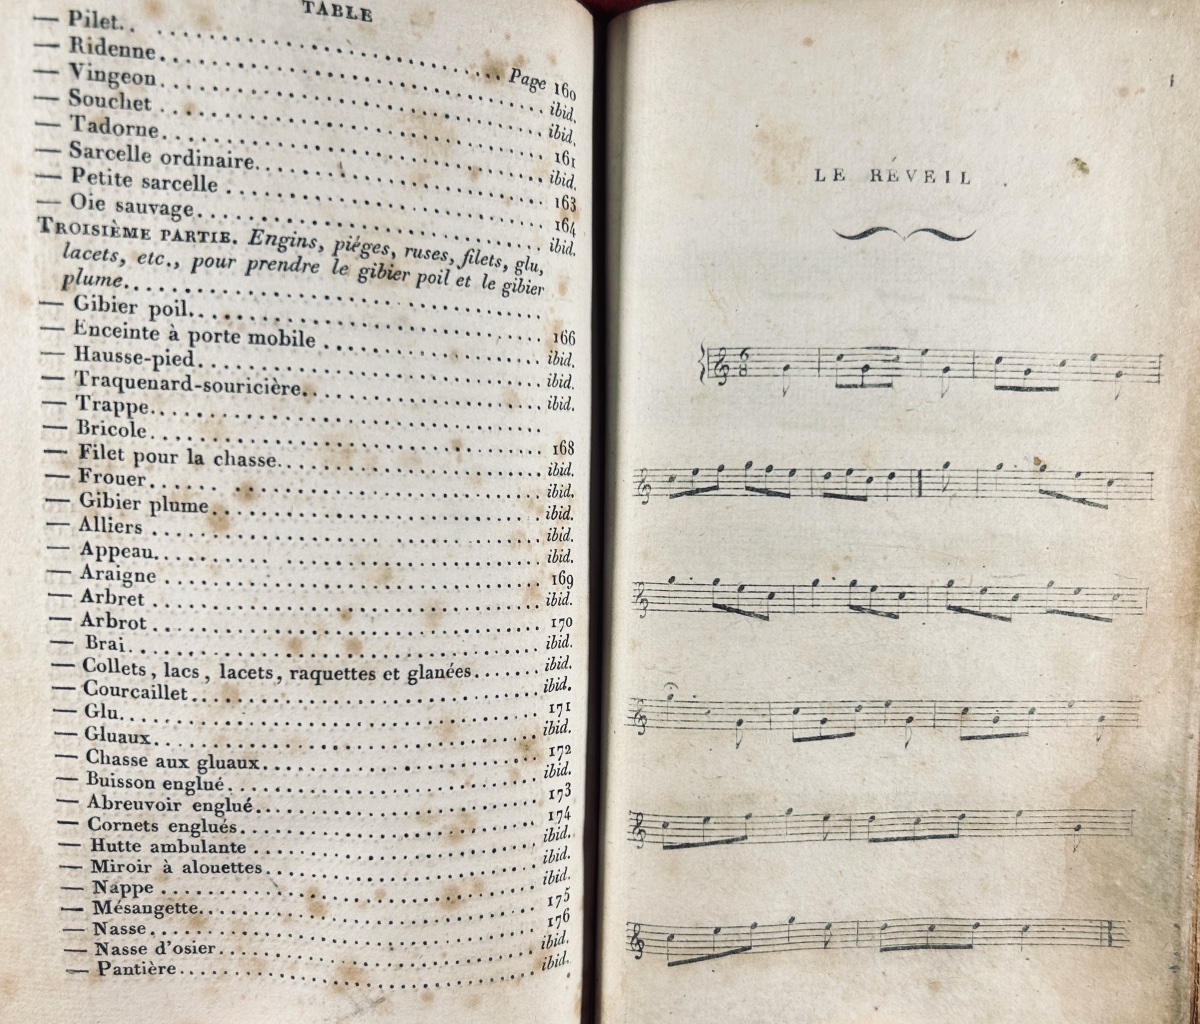 TABLE
— Pilet.. Page 160
— Ridenne. ibid.
— Vingeon. ibid.
— Souchet 161
— Tadorne. ibid.
— Sarcelle ordinaire. 163
— Petite sarcelle 164
— Oie sauvage. ibid.
TROISIÈME PARTIE. Engins, piéges, ruses, filets, glu,
lacets, etc., pour prendre le gibier poil et le gibier
plume.
— Gibier poil. 166
— Enceinte à porte mobile ibid.
— Hausse-pied. ibid.
— Traquenard-souricière. ibid.
— Trappe.
— Bricole. 168
— Filet pour la chasse. ibid.
— Frouer. ibid.
— Gibier plume. ibid.
— Alliers ibid.
— Appeau. ibid.
— Araigne 169
— Arbret ibid.
— Arbrot 170
— Brai. ibid.
— Collets, lacs, lacets, raquettes et glanées. ibid.
— Courcaillet ibid.
— Glu. 171
— Gluaux. ibid.
— Chasse aux gluaux. 172
— Buisson englué. ibid.
— Abreuvoir englué. 173
— Cornets englués. 174
— Hutte ambulante ibid.
— Miroir à alouettes. ibid.
— Nappe ibid.
— Mésangette. 175
— Nasse. 176
— Nasse d'osier ibid.
— Pantière. ibid.
LE RÉVEIL
6
8